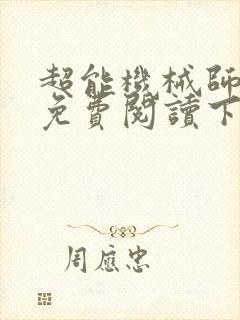 超能機械師
免費閱讀下
周應忠